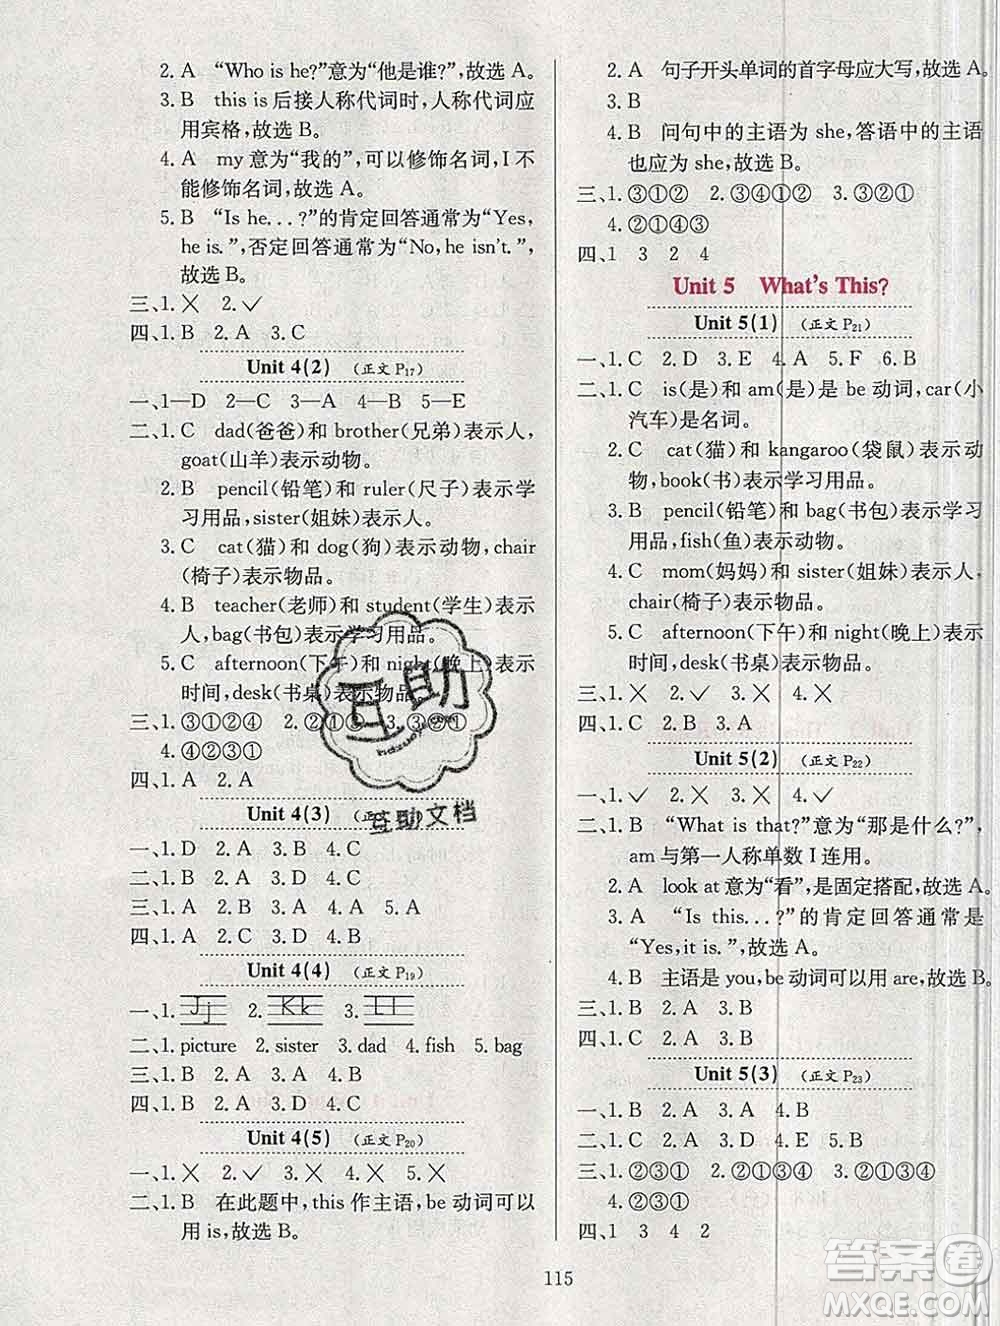 2. A “Who is he?”意为“他是谁?”,故选 A。
3. B this is 后接人称代词时,人称代词应
用宾格,故选 B。
4. A my 意为“我的”,可以修饰名词,I 不
能修饰名词,故选 A。
5. B “Is he...?”的肯定回答通常为“Yes,
he is.”,否定回答通常为“No, he isn't.”,
故选 B。
三、1. ✕ 2. ✓
四、1. B 2. A 3. C
Unit 4(2) (正文 P17)
一、1—D 2—C 3—A 4—B 5—E
二、1. C dad(爸爸)和 brother(兄弟)表示人,
goat(山羊)表示动物。
2. B pencil(铅笔)和 ruler(尺子)表示学
习用品,sister(姐妹)表示人。
3. C cat(猫)和 dog(狗)表示动物,chair
(椅子)表示物品。
4. B teacher(老师)和 student(学生)表示
人,bag(书包)表示学习用品。
5. C afternoon(下午)和 night(晚上)表示
时间,desk(书桌)表示物品。
三、1. ③①②④ 2. ②①③ 3. ③②①
4. ④②③①
四、1. A 2. A
Unit 4(3)
一、1. D 2. A 3. B 4. C
二、1. B 2. A 3. B 4. C
三、1. A 2. A 3. B 4. A 5. A
四、1. A 2. C 3. D 4. B
Unit 4(4) (正文 P19)
一、1. Jj 2. Kk 3. Ll
二、1. picture 2. sister 3. dad 4. fish 5. bag
三、1. B 2. B 3. A 4. A 5. B
四、1. C 2. A 3. B 4. D
Unit 4(5) (正文 P20)
一、1. ✕ 2. ✓ 3. ✕ 4. ✕ 5. ✓
二、1. B 在此题中,this 作主语,be 动词可以
用 is,故选 B。
2. A 句子开头单词的首字母应大写,故选 A。
3. B
4. B 问句中的主语为 she,答语中的主语
也应为 she,故选 B。
三、1. ③①② 2. ③④①② 3. ③②①
4. ②①④③
四、1 3 2 4
Unit 5 What's This?
Unit 5(1) (正文 P21)
一、1. C 2. D 3. E 4. A 5. F 6. B
二、1. C is(是)和 am(是)是 be 动词,car(小
汽车)是名词。
2. C cat(猫)和 kangaroo(袋鼠)表示动
物,book(书)表示学习用品。
3. B pencil(铅笔)和 bag(书包)表示学习
用品,fish(鱼)表示动物。
4. C mom(妈妈)和 sister(姐妹)表示人,
chair(椅子)表示物品。
5. C afternoon(下午)和 night(晚上)表示
时间,desk(书桌)表示物品。
三、1. ✕ 2. ✓ 3. ✕ 4. ✕
四、1. C 2. B 3. A
Unit 5(2) (正文 P22)
一、1. ✓ 2. ✕ 3. ✕ 4. ✓
二、1. B “What is that?”意为“那是什么?”,
am 与第一人称单数 I 连用。
2. A look at 意为“看”,是固定搭配,故选 A。
3. A “Is this...?”的肯定回答通常是
“Yes, it is.”,故选 A。
4. B 主语是 you,be 动词可以用 are,故选 B。
三、1. B 2. A 3. B
四、1. C 2. A 3. B
Unit 5(3) (正文 P23)
一、1. B 2. A 3. A 4. B
二、1. C 2. A 3. D 4. E 5. B
三、1. ②③① 2. ②①③④ 3. ④②①③
4. ②③①
四、1 3 4 2
115
互助
kidzuowen.com
互助文档
答案圈
MXQE.COM